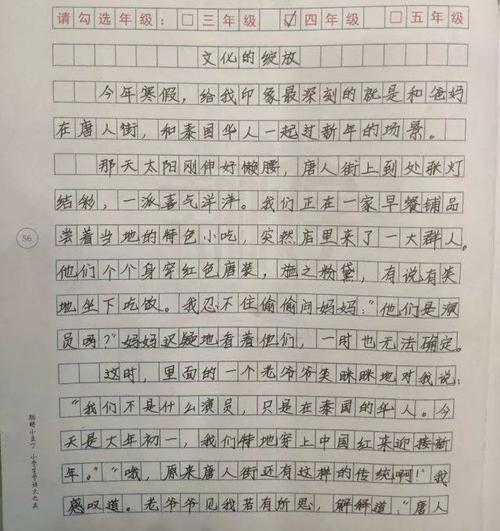 请勾选年级：□三年级 ☑四年级 □五年级
文化的绽放
今年寒假，给我印象最深刻的就是和爸妈
在唐人街，和泰国华人一起过新年的场景。
那天太阳刚伸好懒腰，唐人街上到处张灯
结彩，一派喜气洋洋。我们正在一家早餐铺品
尝着当地的特色小吃，突然店里来了一大群人。
他们个个身穿红色唐装，施之粉黛，有说有笑
地坐下吃饭。我忍不住偷偷问妈妈：“他们是演
员吗？”妈妈迟疑地看着他们，一时也无法确定。
这时，里面的一个老爷爷笑眯眯地对我说：
“我们不是什么演员，只是在泰国的华人。今
天是大年初一，我们特地穿上中国红来迎接新
年。”“哦，原来唐人街还有这样的传统啊！”我
感叹道。老爷爷见我若有所思，解释道：“唐人
56